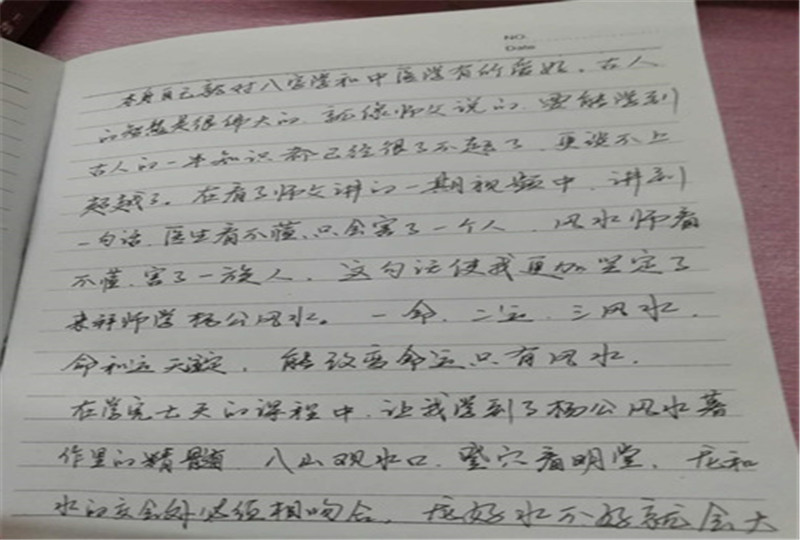 NO.
Date
本身自己就对八字学和中医学有所喜好。古人
的智慧是很伟大的，就像师父说的，要能学到
古人的一半知识都已经很了不起了，更谈不上
超越了。在看了师父讲的一期视频中，讲到
一句话，医生看不懂，只会害了一个人，风水师看
不懂，害了一族人，这句话使我更加坚定了
来拜师学杨公风水。一命，二运，三风水，
命和运天定，能改变命运只有风水，
在学完七天的课程中，让我学到了杨公风水著
作里的精髓 八山观水口，登穴看明堂，龙和
水的交会处必须相吻合，龙好水不好就会大